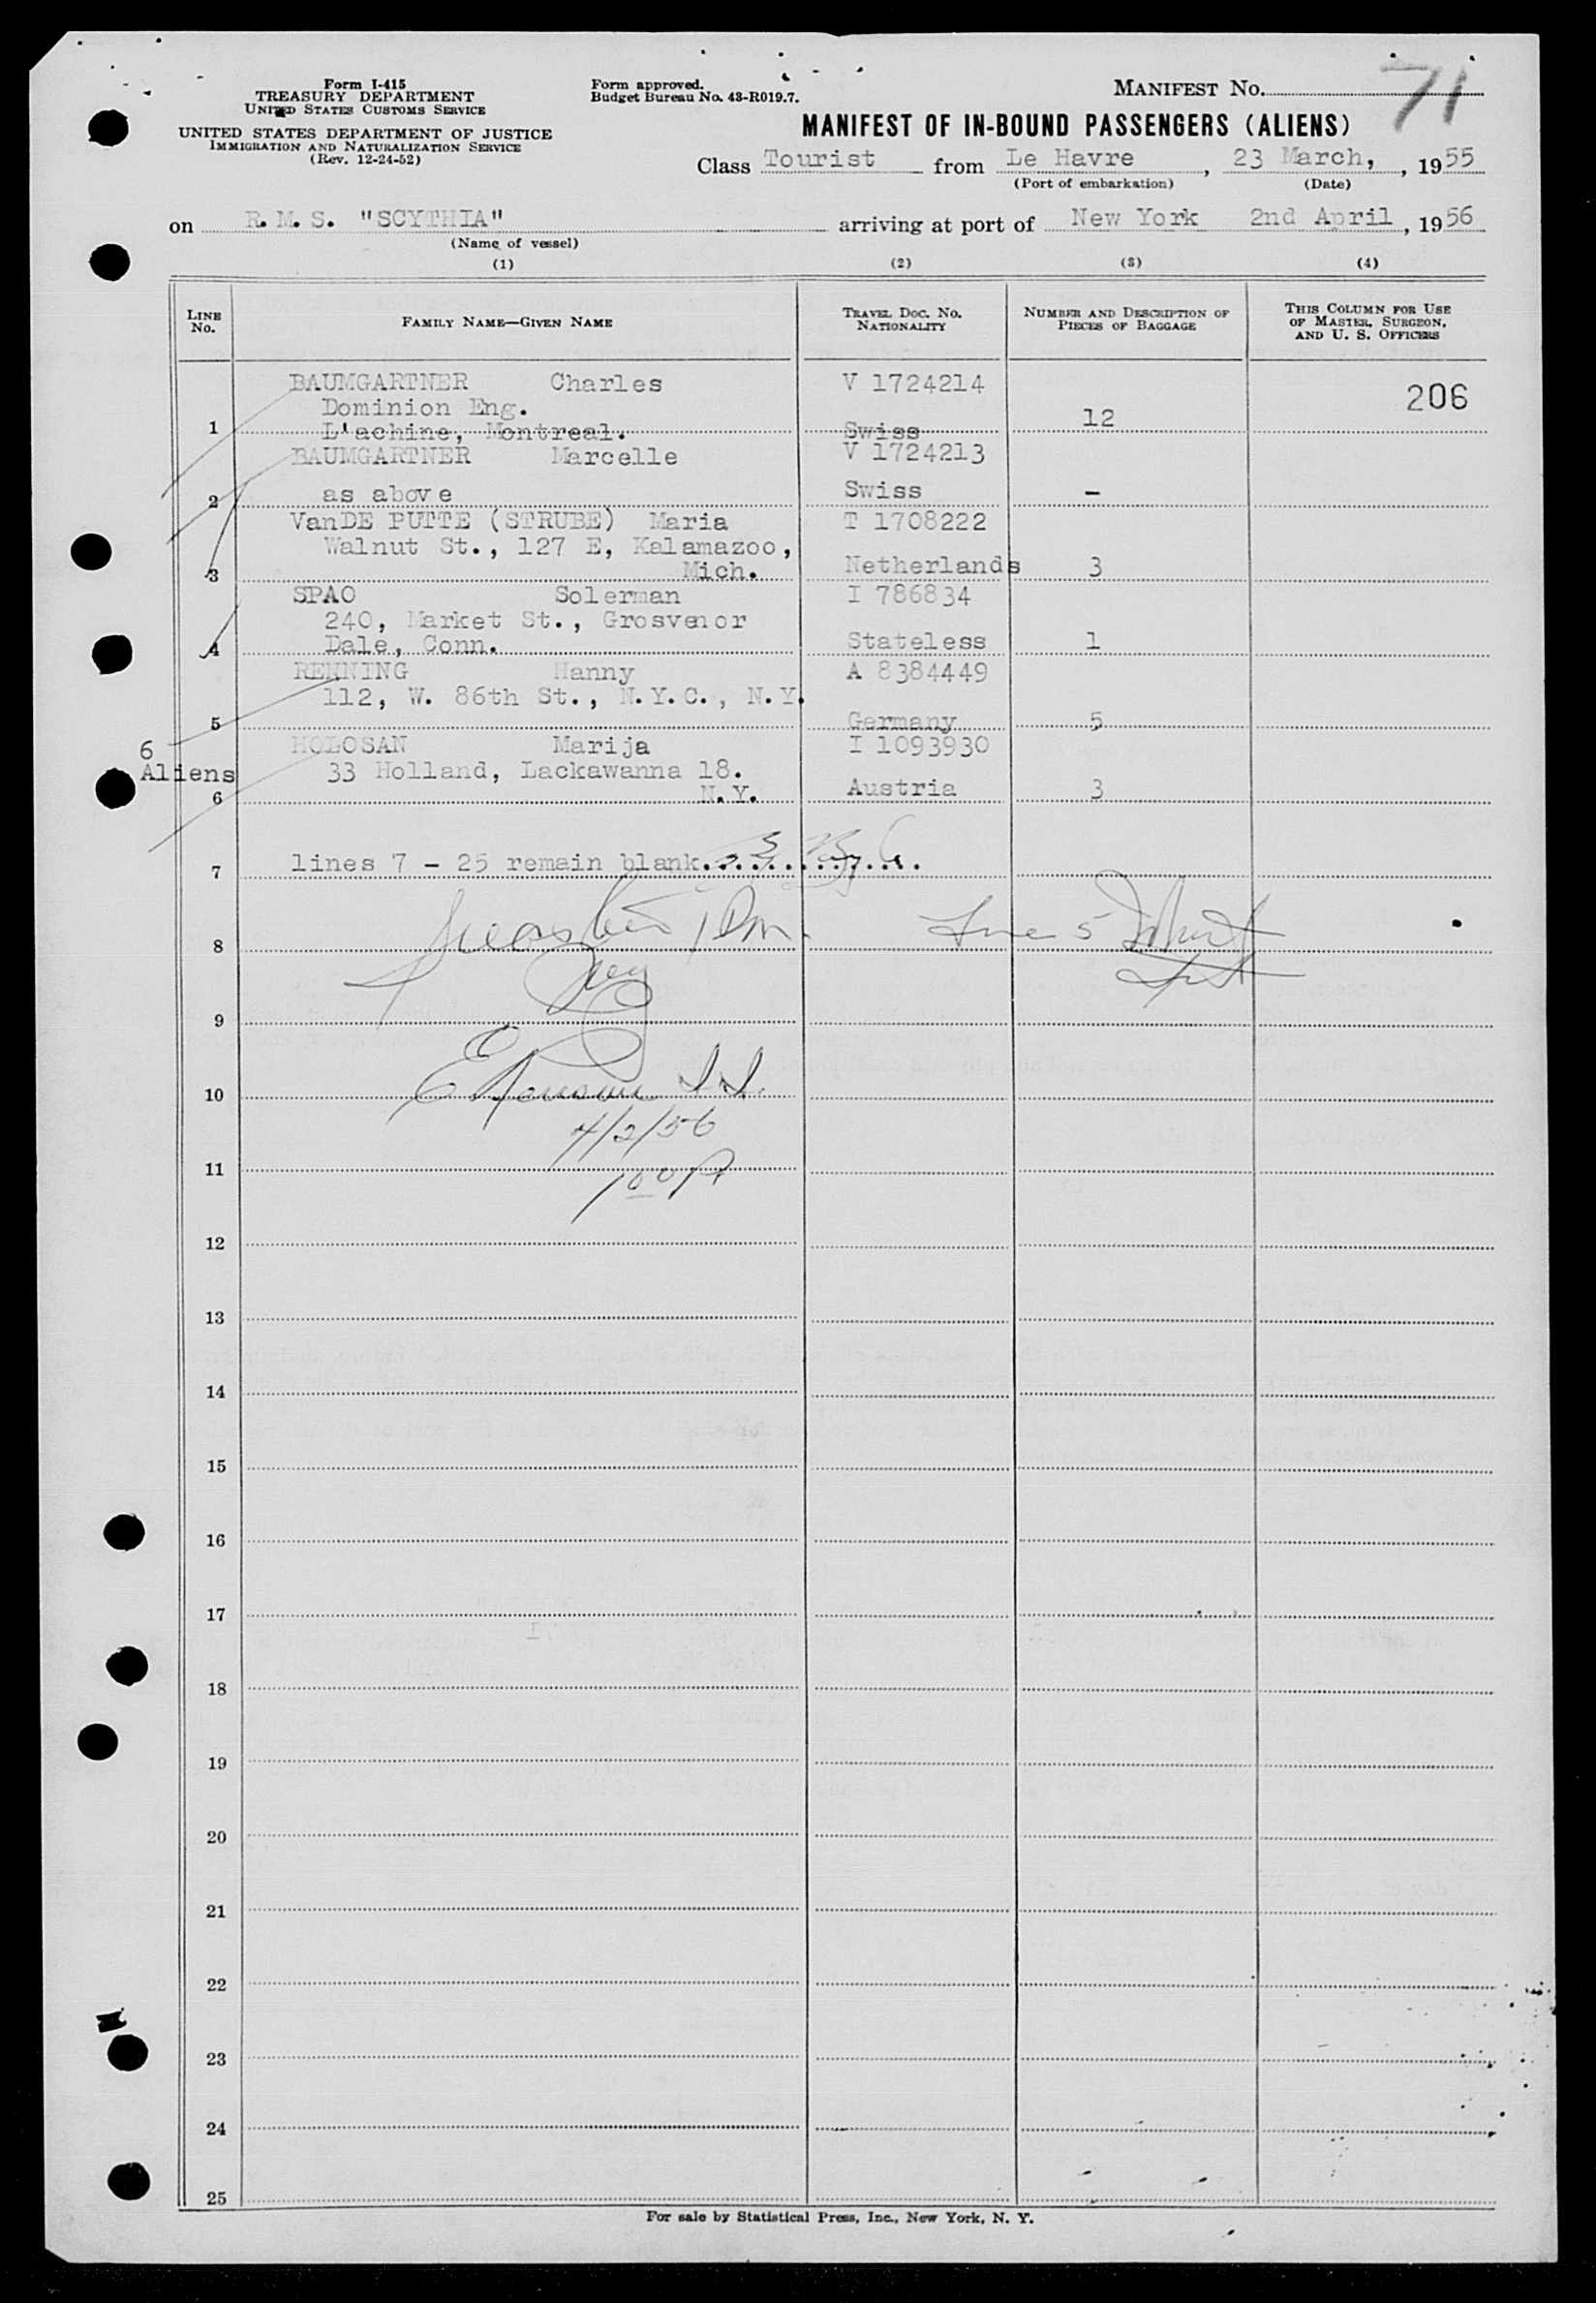 Form I-415
TREASURY DEPARTMENT
UNITED STATES CUSTOMS SERVICE
UNITED STATES DEPARTMENT OF JUSTICE
IMMIGRATION AND NATURALIZATION SERVICE
(Rev. 12-24-52)
Form approved.
Budget Bureau No. 43-R019.7.
MANIFEST NO. 71
MANIFEST OF IN-BOUND PASSENGERS (ALIENS)
Class Tourist from Le Havre, 23 March, , 1955
(Port of embarkation) (Date)
on R.M.S. "SCYTHIA" arriving at port of New York 2nd April, 1956
(Name of vessel)
(1) (2) (3) (4)
LINE No. FAMILY NAME—GIVEN NAME TRAVEL DOC. NO. NATIONALITY NUMBER AND DESCRIPTION OF PIECES OF BAGGAGE THIS COLUMN FOR USE OF MASTER, SURGEON, AND U. S. OFFICERS
BAUMGARTNER Charles V 1724214 206
Dominion Eng.
1 L'achine, Montreal. Swiss 12
BAUMGARTNER Marcelle V 1724213
2 as above Swiss -
VanDE PUTTE (STRUBE) Maria T 1708222
Walnut St., 127 E, Kalamazoo,
3 Mich. Netherlands 3
SPAO Solerman I 786834
240, Market St., Grosvenor
4 Dale, Conn. Stateless 1
RENNING Hanny A 8384449
112, W. 86th St., N.Y.C., N.Y.
5 Germany 5
6 Aliens
HOLOSAN Marija I 1093930
33 Holland, Lackawanna 18.
6 N.Y. Austria 3
7 lines 7 - 25 remain blank
8 Line 5
9
10
4/2/56
11
1 00 P
12
13
14
15
16
17
18
19
20
21
22
23
24
25
For sale by Statistical Press, Inc., New York, N. Y.